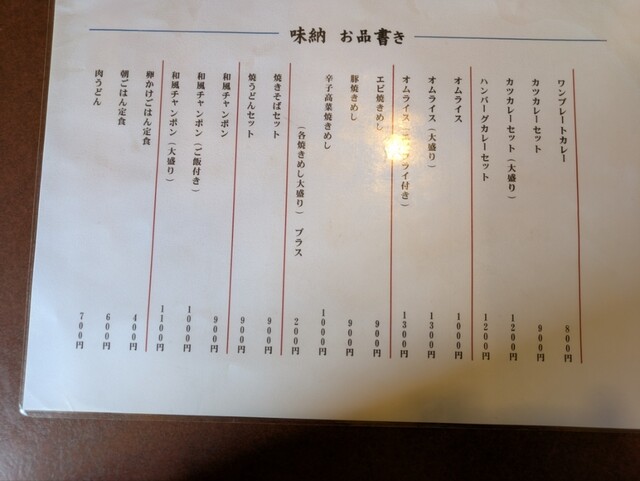 味納 お品書き
ワンプレートカレー 800円
カツカレーセット 900円
カツカレーセット(大盛り) 1200円
ハンバーグカレーセット 1200円
オムライス 1000円
オムライス(大盛り) 1300円
オムライス( フライ付き) 1300円
エビ焼きめし 900円
豚焼きめし 900円
辛子高菜焼きめし 1000円
(各焼きめし大盛り) プラス 200円
焼きそばセット 900円
焼うどんセット 900円
和風チャンポン 900円
和風チャンポン(ご飯付き) 1000円
和風チャンポン(大盛り) 1100円
卵かけごはん定食 400円
朝ごはん定食 600円
肉うどん 700円